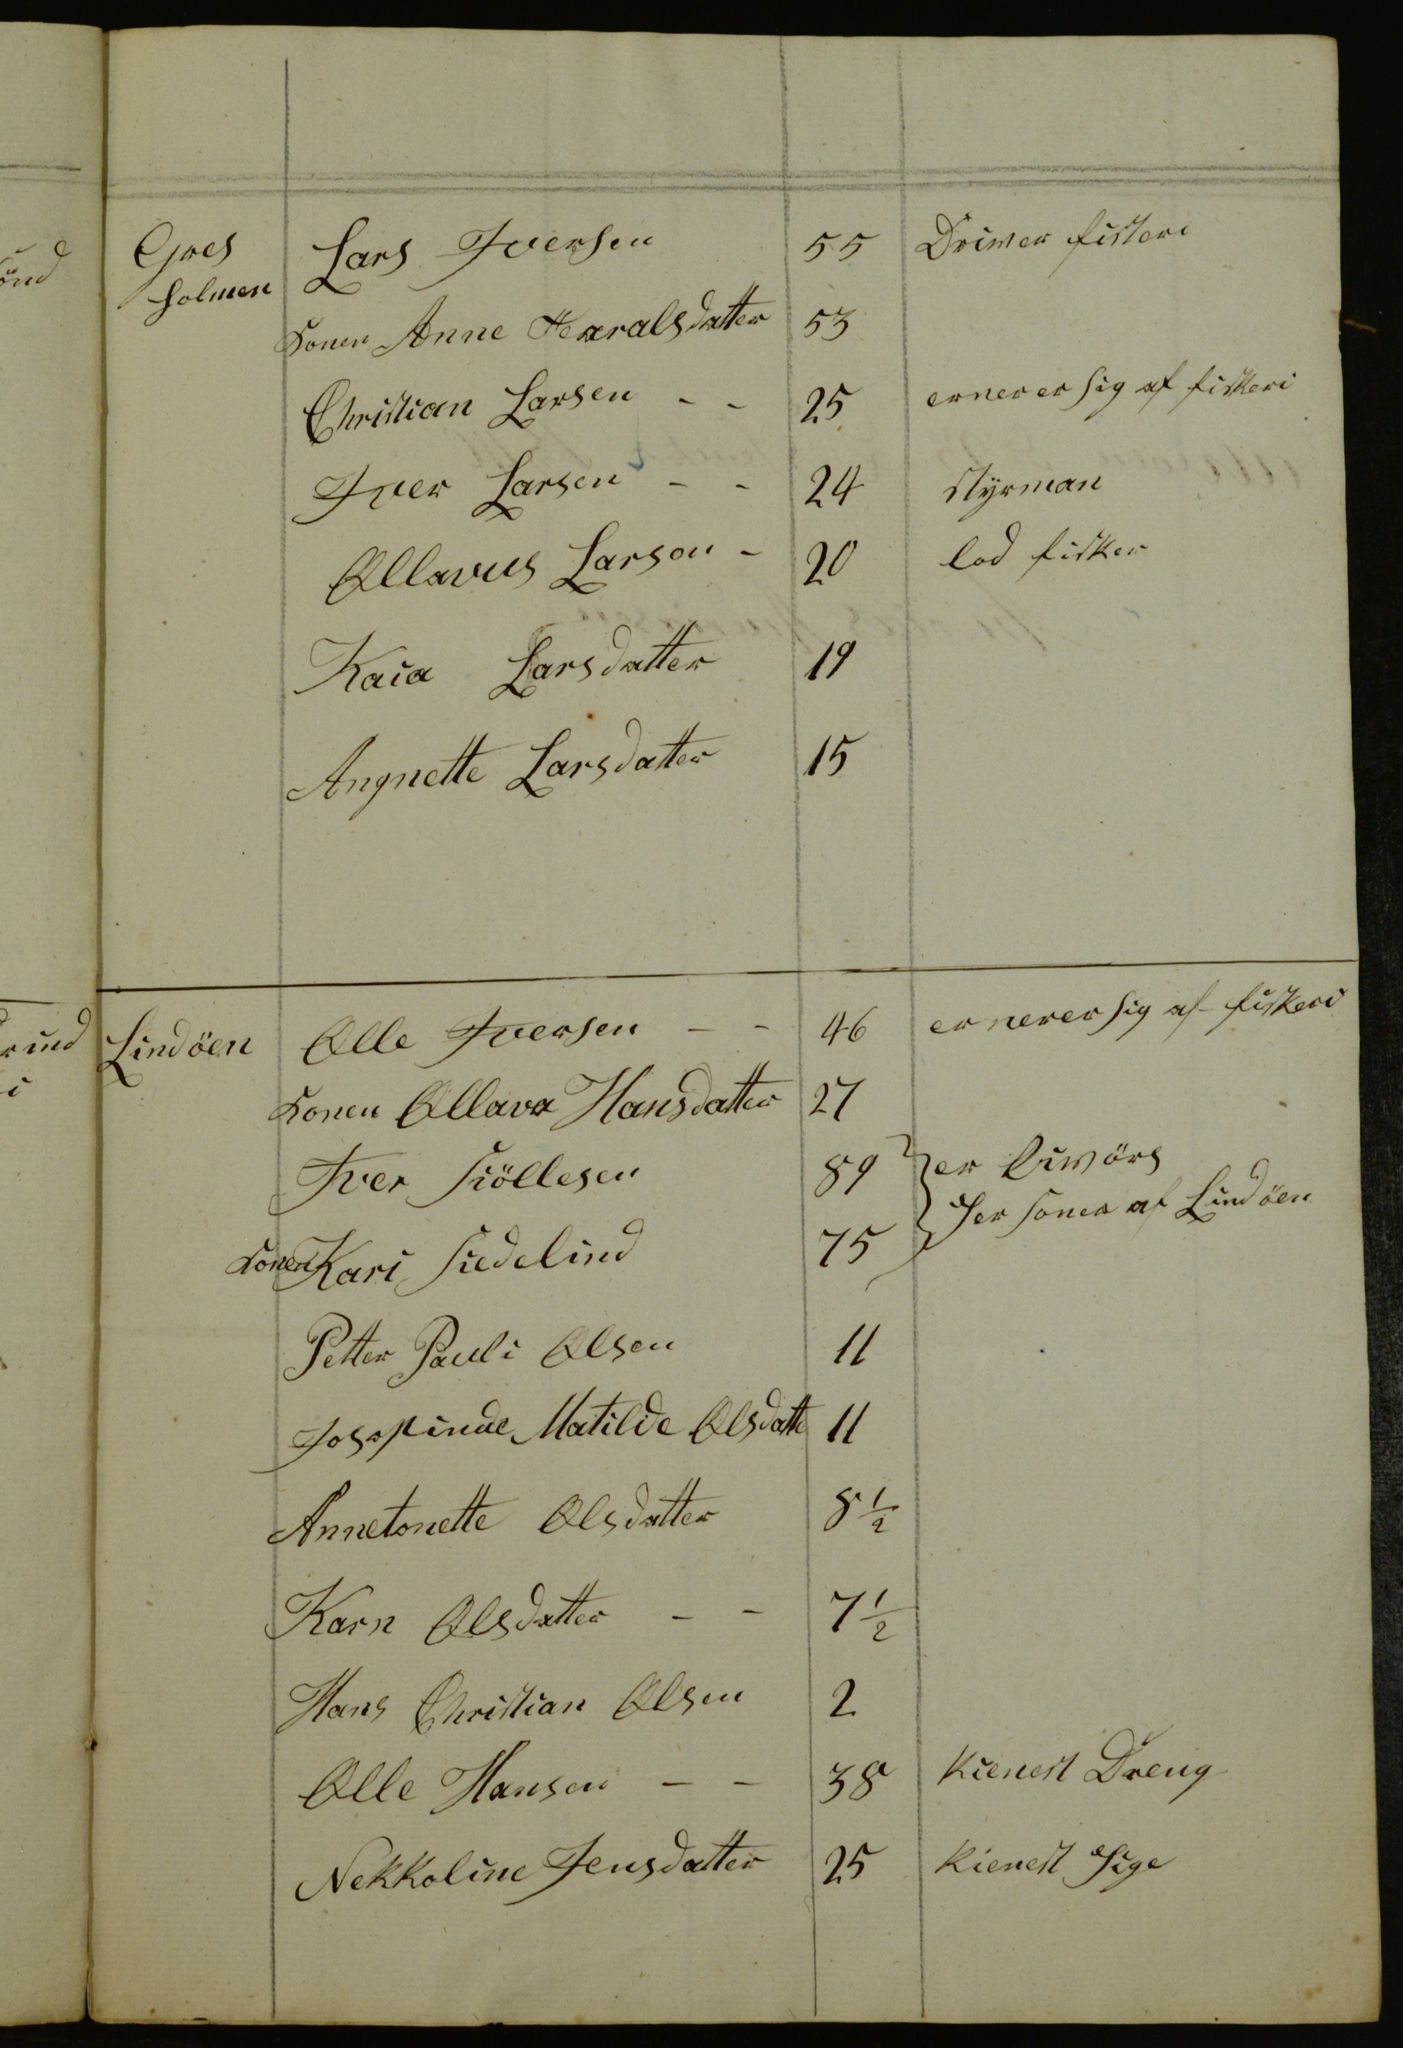 Gres Lars Iversen 55 Driver fiskeri
holmen
konen Anne Haaralsdatter 53
Christian Larsen - - 25 ernerer sig af fiskeri
Iver Larsen - - 24 styrman
Ollavus Larsen - 20 lod fisker
Kaia Larsdatter 19
Angnette Larsdatter 15
Lindöen Olle Iversen - - 46 ernerer sig af fiskeri
konen Ollava Hansdatter 27
Iver Siöllesen 89 er
75 Personer af Lindöen
konen Kari
Petter Pauli Olsen 11
Matilde Olsdatte 11
Annetonette Olsdatter 8 1/2
Karn Olsdatter - - 7 1/2
Hans Christian Olsen 2
Olle Hansen - - 38 kienest Dreng
Nekkoline Jensdatter 25 kienest Pige